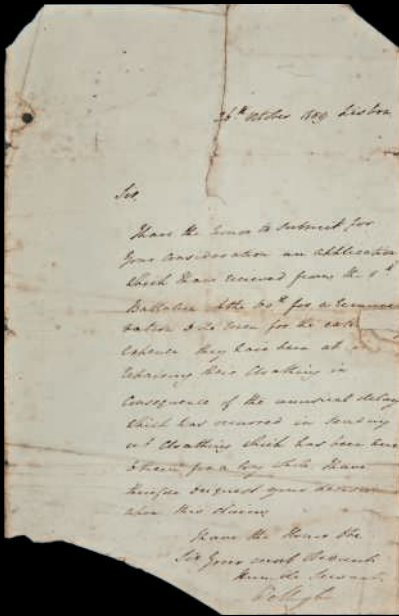 26th October 1809 Lisbon
Sir,
I have the honor to submit for
your consideration an application
which I have received from the 5th
Battalion of the 60th for a remune
ration to the men for the
expence they have been at in
repairing their Cloathing in
Consequence of the unusual delay
which has occurred in sending
out Cloathing which has been due
to them for a long while I have
therefore to request your decision
upon this claim
I have the Honor &c
Sir Your most Obedient
Humble Servant